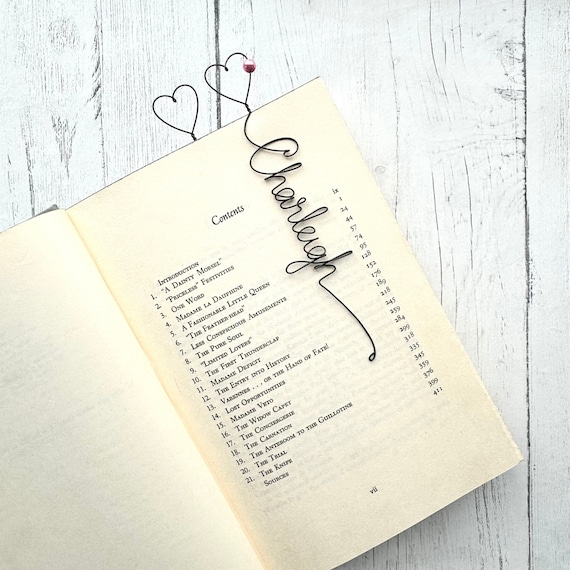 Charleigh
Contents
INTRODUCTION ix
1. "A DAINTY MORSEL" 1
2. "PRICELESS" FESTIVITIES 24
3. ONE WORD 44
4. MADAME LA DAUPHINE 57
5. A FASHIONABLE LITTLE QUEEN 74
6. "THE FEATHER-HEAD" 95
7. LESS CONSPICUOUS AMUSEMENTS 128
8. THE PURE SOUL 152
9. "LIMITED LOVERS" 176
10. THE FIRST THUNDERCLAP 189
11. MADAME DEFICIT 218
12. THE ENTRY INTO HISTORY
13. VARENNES . . . OR THE HAND OF FATE! 259
14. LOST OPPORTUNITIES 284
15. MADAME VETO
16. THE WIDOW CAPET 319
17. THE CONCIERGERIE 335
18. THE CARNATION 345
19. THE ANTEROOM TO THE GUILLOTINE 359
20. THE TRIAL 376
21. THE KNIFE 399
SOURCES 411
vii